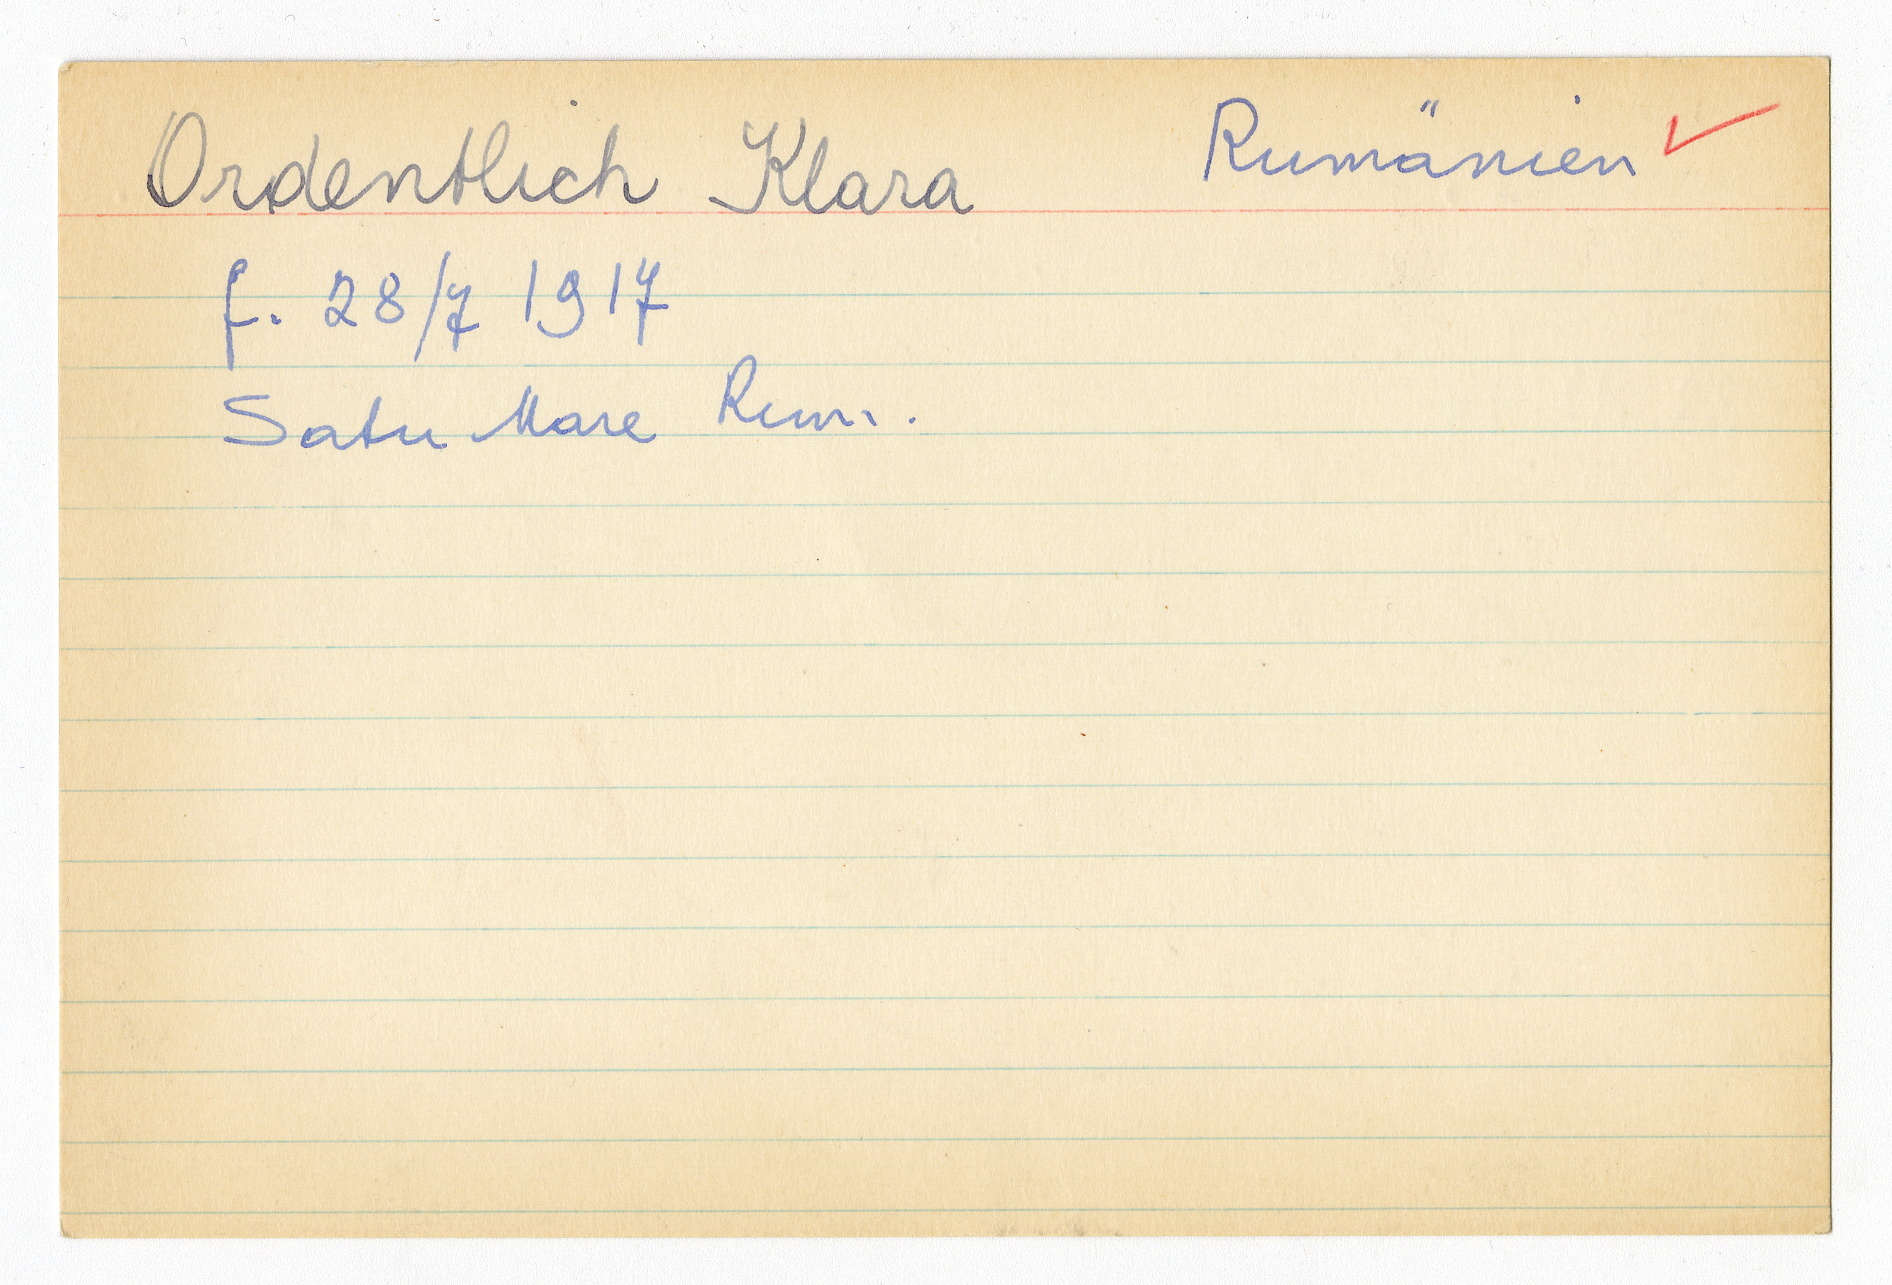 Ordentlich Klara Rumänien ✓
f. 28/7 1917
Satu Mare Rum.